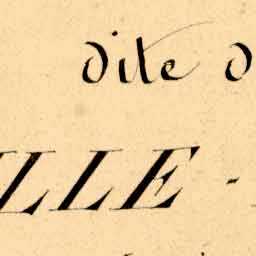 dite d
LLE -